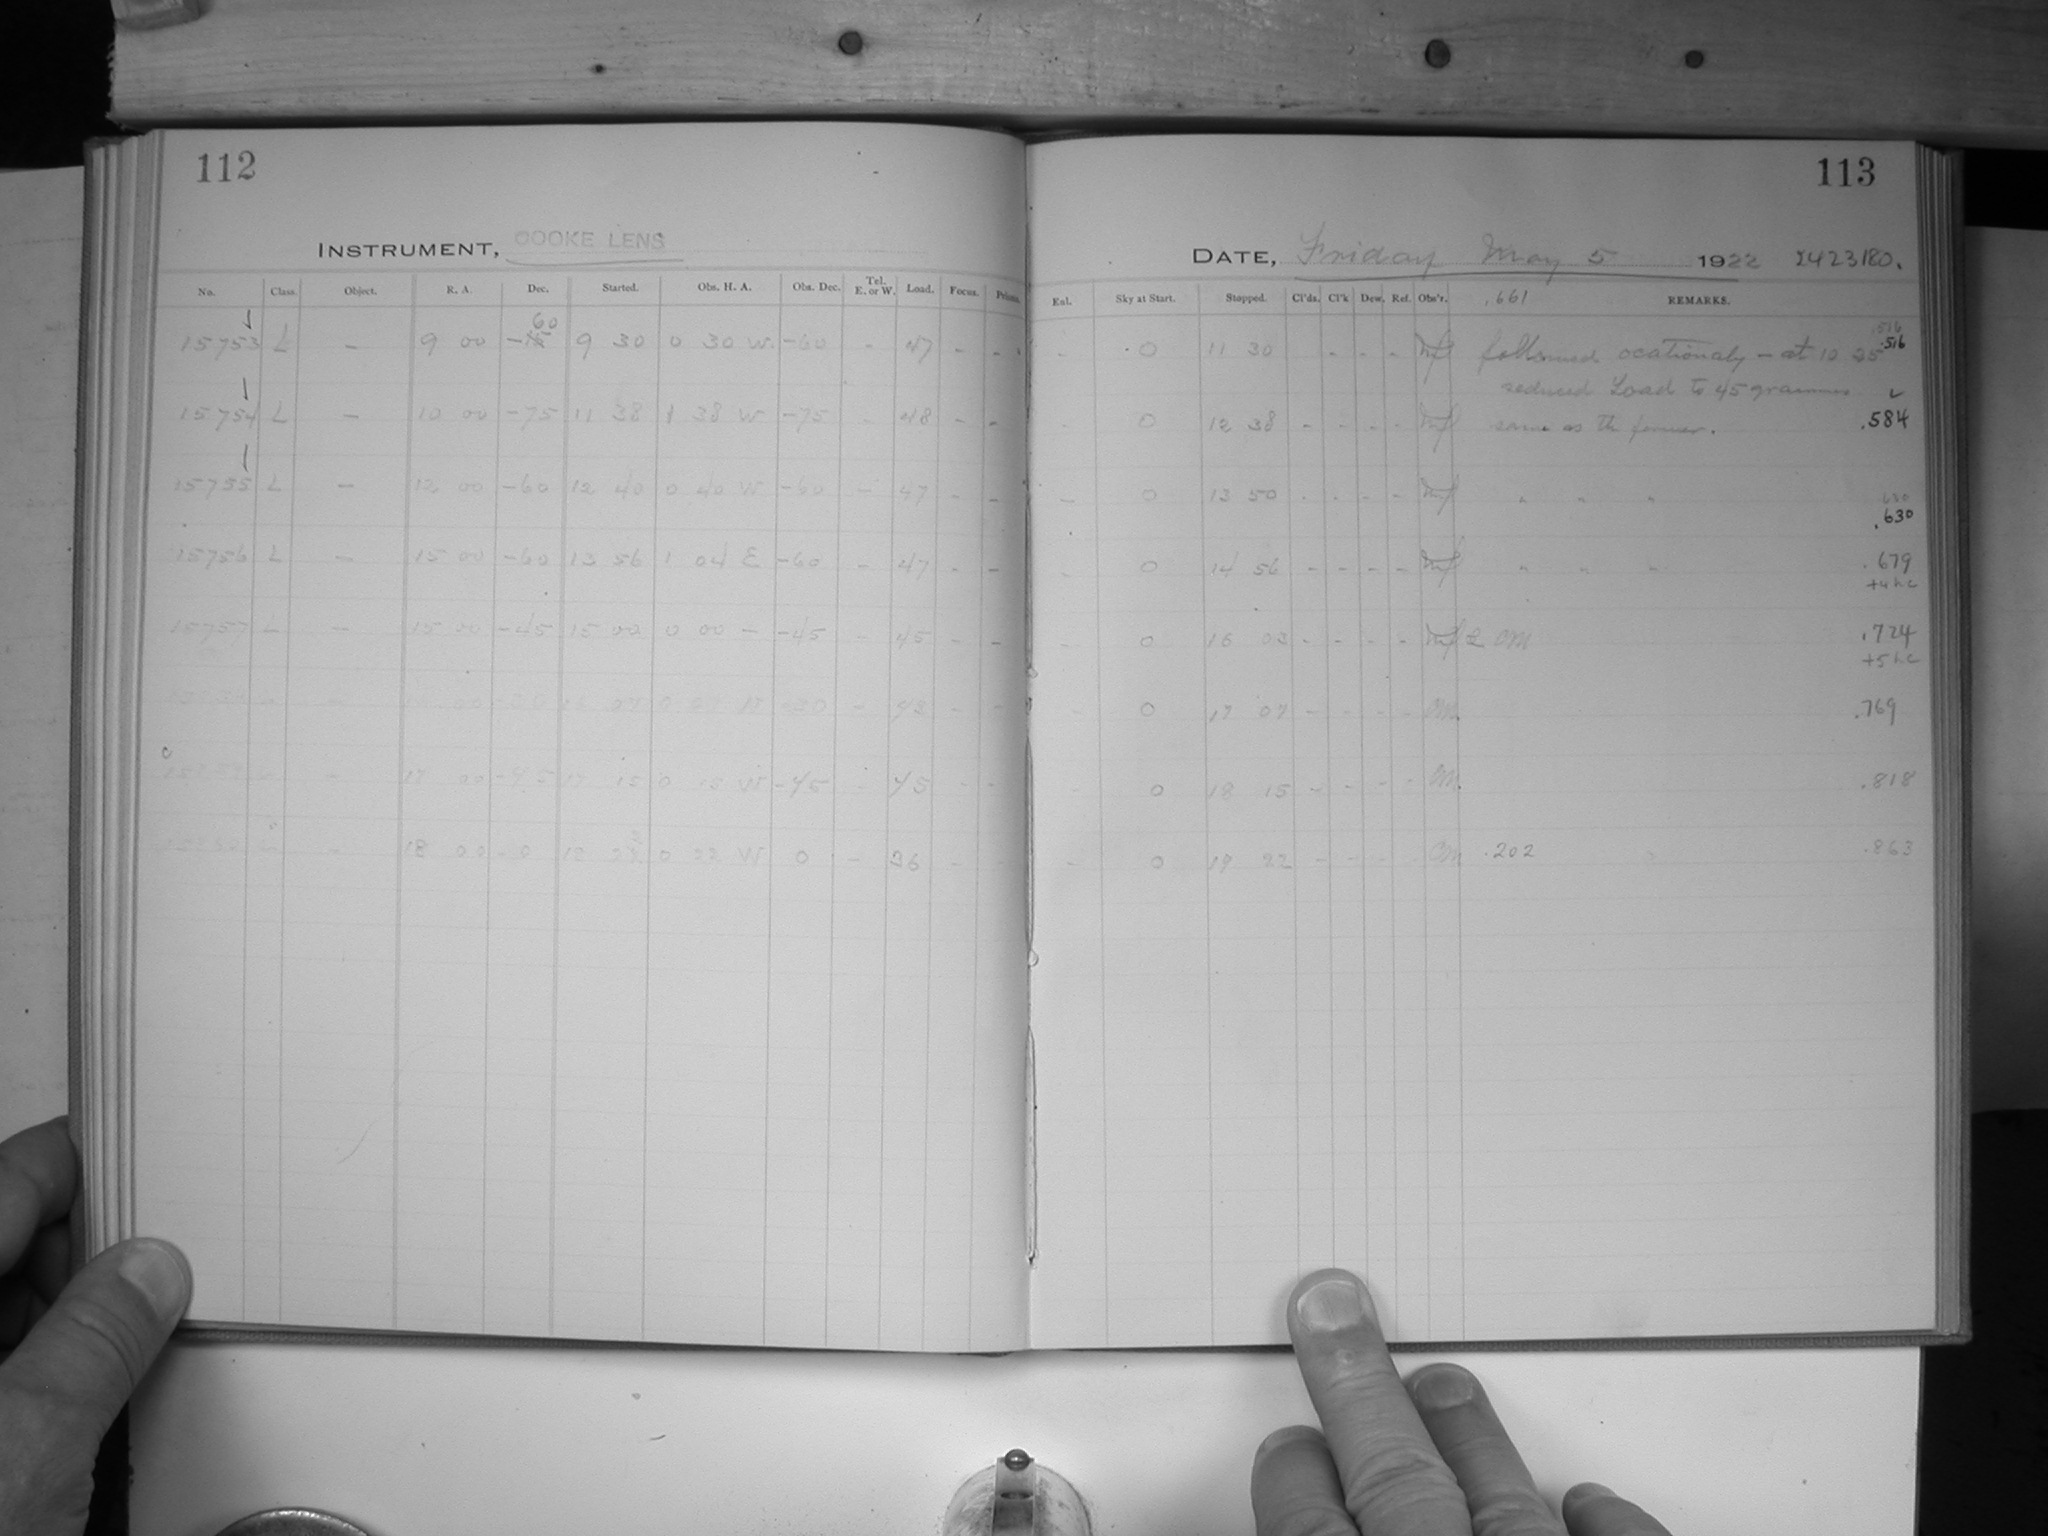 112
INSTRUMENT, COOKE LENS
No. Class. Object. R. A. Dec. Started. Obs. H. A. Obs. Dec. Tel. E. or W. Load. Focus. Prisms.
60
15753 L — 9 00 9 30 0 30 W. -60 - 47 - -
15754 L — 10 00 -75 11 38 1 38 W -75 - 48 - -
15755 L — 12 00 -60 12 40 0 40 W -60 - 47 - -
15756 L — 15 00 -60 13 56 1 04 E -60 - 47 - -
15757 L — 15 00 -45 15 02 0 00 - -45 - 45 - -
00 -30 07 0 -30 - 43 - -
17 00 -45 17 15 0 15 W -45 - 45 - -
18 00 - 0 18 22 0 22 W 0 - 36 - -
113
DATE, Friday May 5 1922 2423180.
Exl. Sky at Start. Stopped. Cl'ds. Cl'k Dew. Ref. Obs'r. .661 REMARKS.
.516
- 0 11 30 - - - followed ocationaly — at 10 25 .516
reduced Load to 45 grammes
- 0 12 38 - - - - same as the former. .584
- 0 13 50 - - - - " " " .630
.630
- 0 14 56 - - - - " " " .679
+4hc
- 0 16 02 - - - - & OM .724
+5hc
- 0 17 07 - - - - OM. .769
- 0 18 15 - - - - OM. .818
- 0 19 22 - - - OM .202 .863